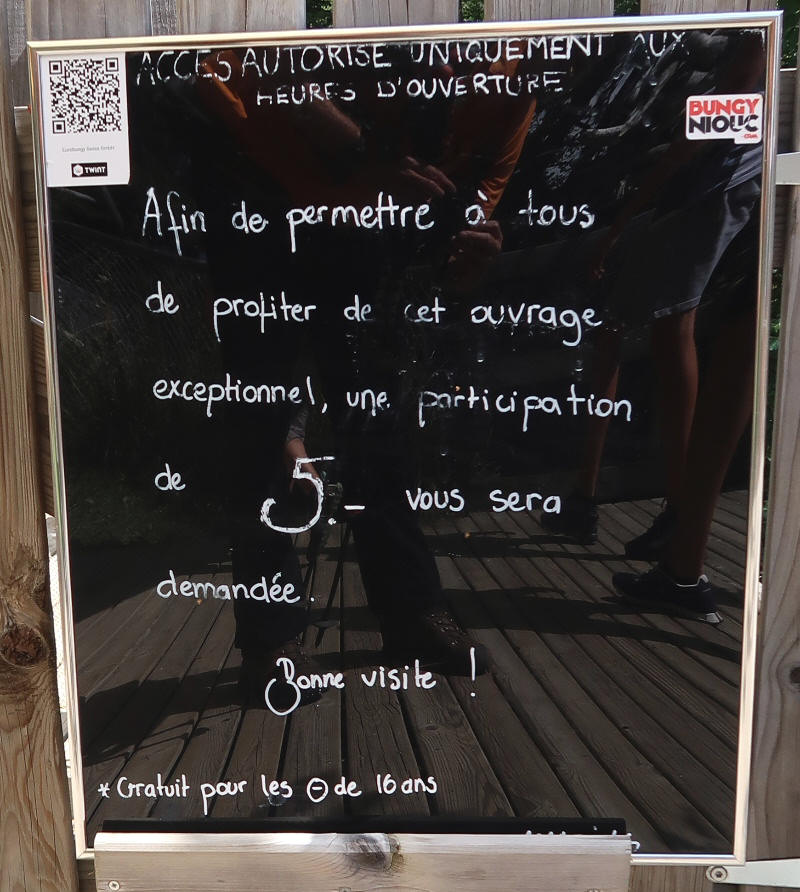 ACCES AUTORISE UNIQUEMENT AUX
HEURES D'OUVERTURE
Eurobungy Swiss GmbH
TWINT
BUNGY
NIOUC
.com
Afin de permettre à tous
de profiter de cet ouvrage
exceptionnel, une participation
de 5.- vous sera
demandée.
Bonne visite !
* Gratuit pour les ⊖ de 16 ans